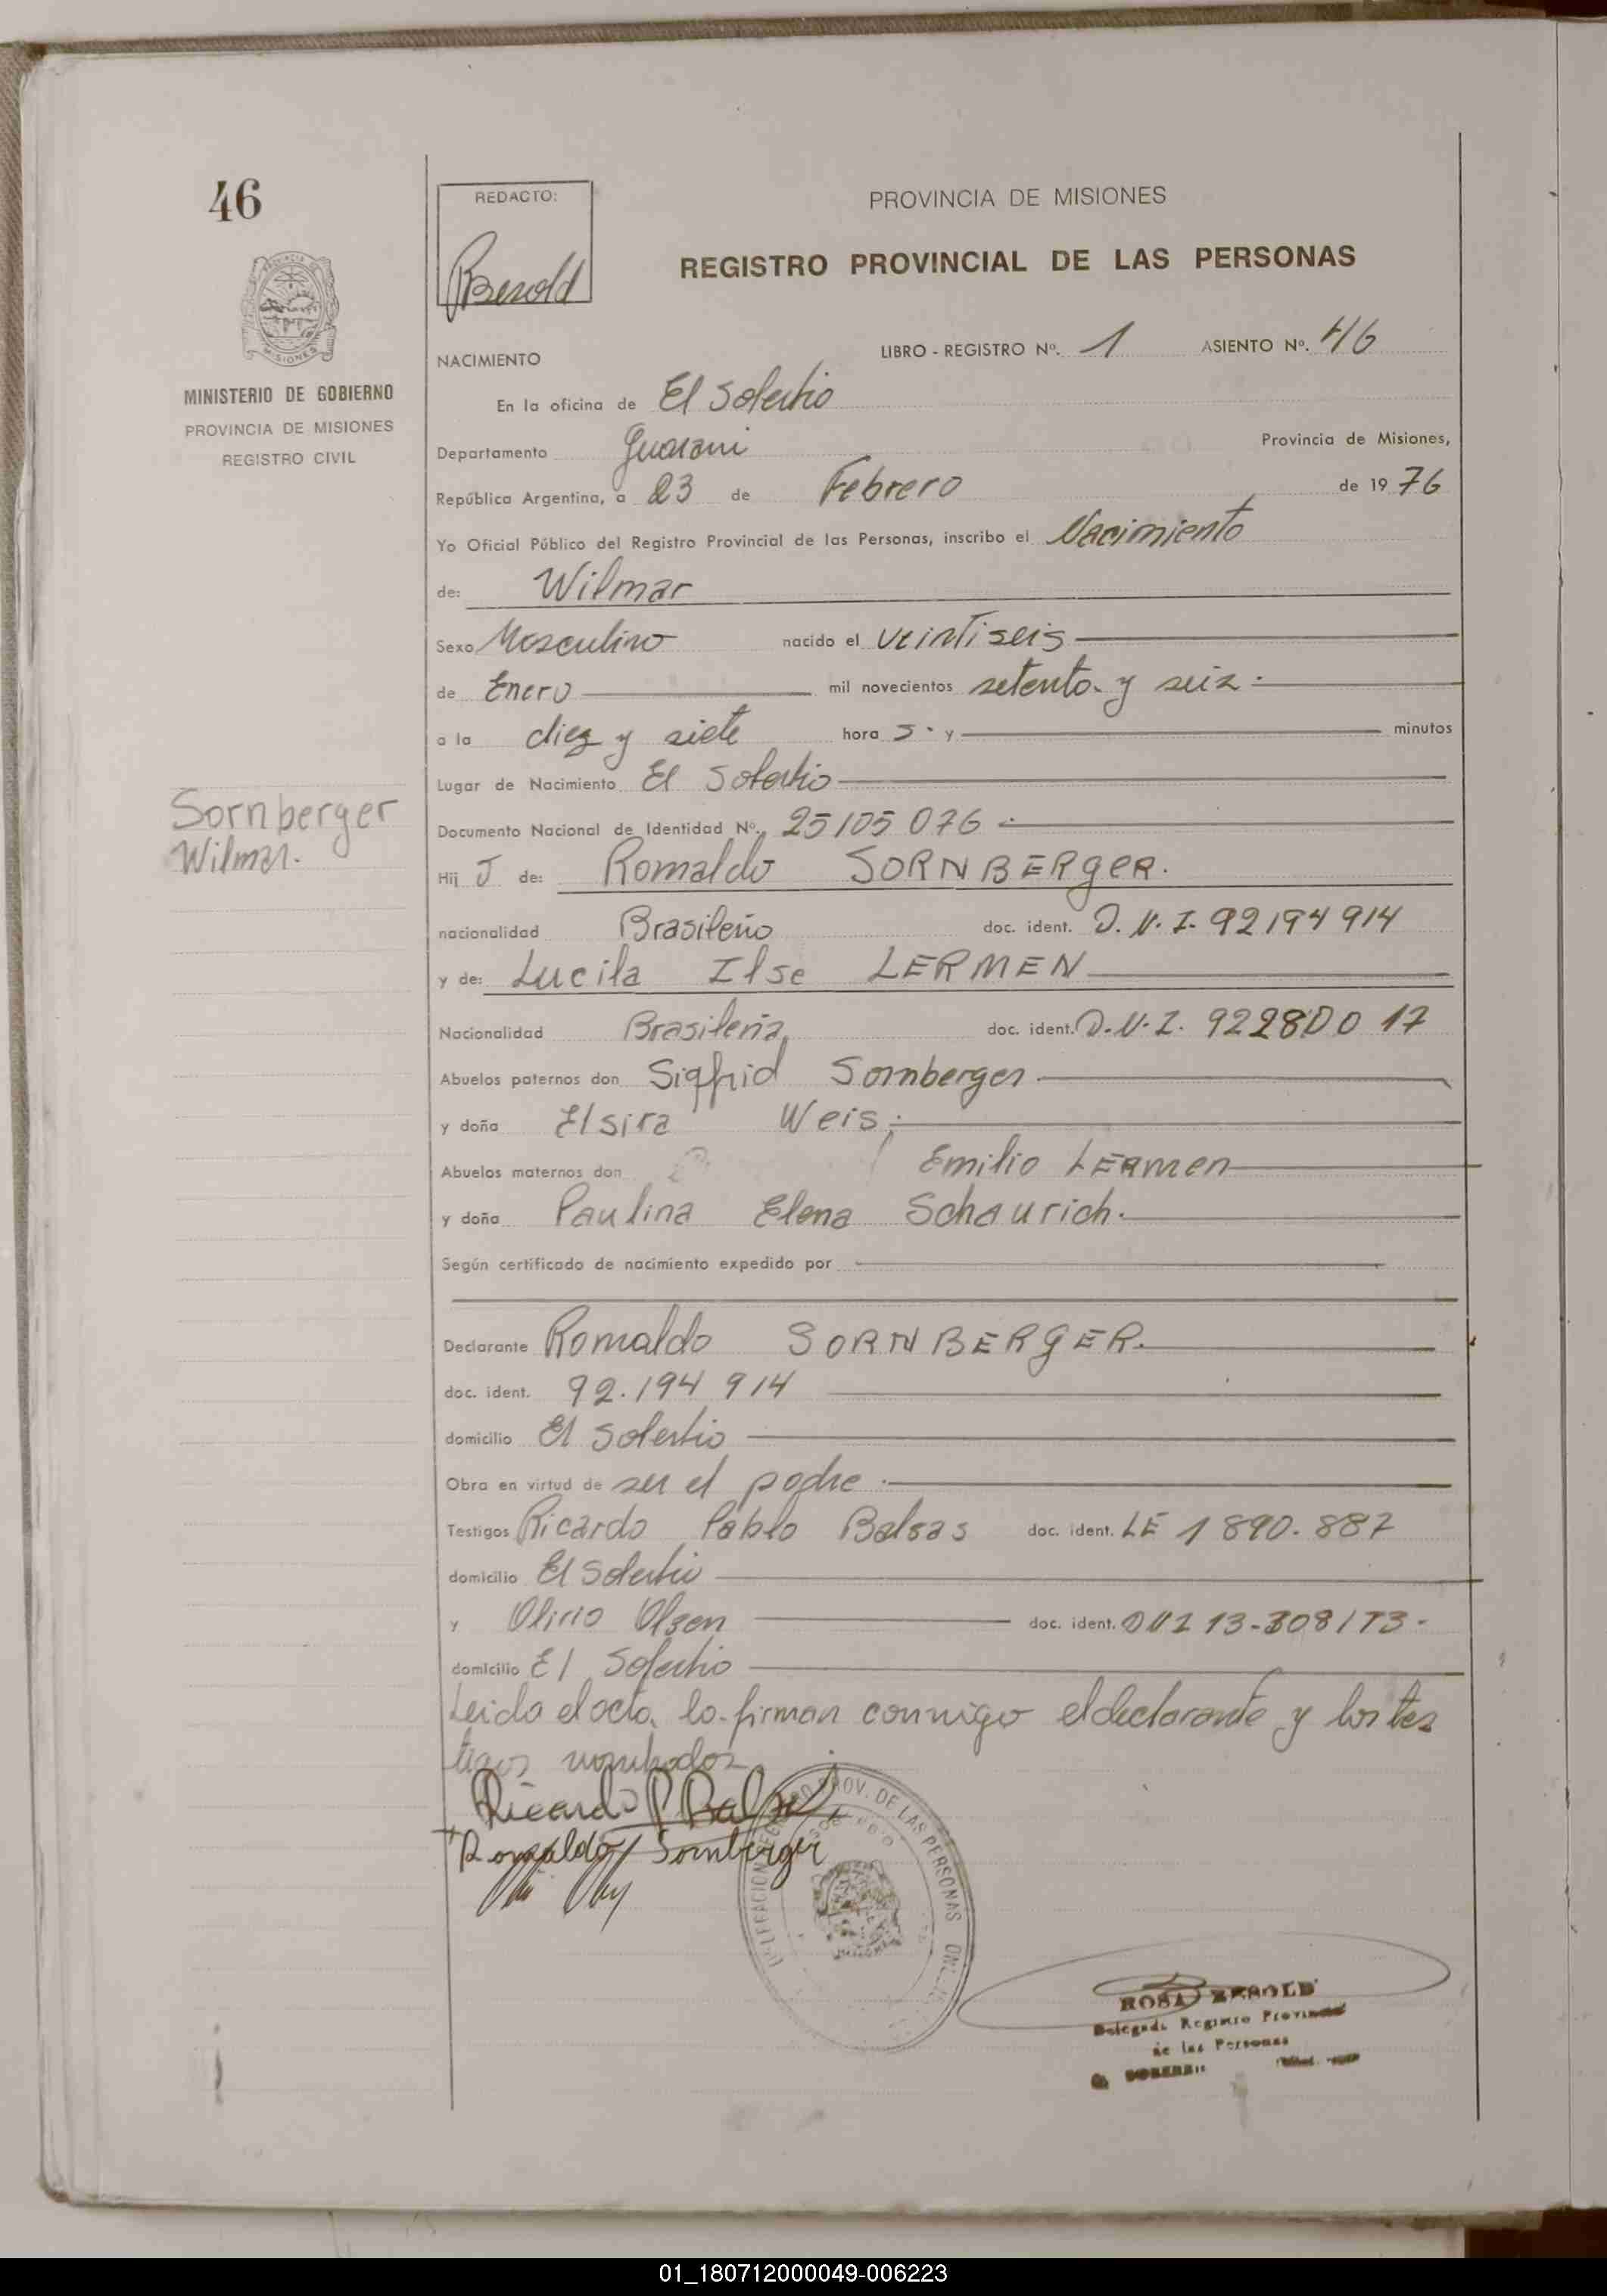 46
REDACTO:
PROVINCIA DE MISIONES
Berold
REGISTRO PROVINCIAL DE LAS PERSONAS
MINISTERIO DE GOBIERNO
PROVINCIA DE MISIONES
REGISTRO CIVIL
NACIMIENTO
LIBRO - REGISTRO Nº. 1 ASIENTO Nº. 46
En la oficina de El Soberbio
Departamento Guarani Provincia de Misiones,
República Argentina, a 23 de Febrero de 1976
Yo Oficial Público del Registro Provincial de las Personas, inscribo el Nacimiento
de: Wilmar
Sexo Masculino nacido el veintiseis
de Enero mil novecientos setenta y seis.
a la diez y siete hora s. y minutos
Lugar de Nacimiento El Soberbio
Sornberger
Wilmar.
Documento Nacional de Identidad Nº. 25105076
Hij o de: Romaldo SORNBERGER.
nacionalidad Brasileño doc. ident. D.N.I. 92194914
y de: Lucila Ilse LERMEN
Nacionalidad Brasileña doc. ident. D.N.I. 92280017
Abuelos paternos don Sigfrid Sornberger
y doña Elsira Weis.
Abuelos maternos don Emilio LERMEN
y doña Paulina Elena Schaurich.
Según certificado de nacimiento expedido por
Declarante Romaldo SORNBERGER.
doc. ident. 92.194914
domicilio El Soberbio
Obra en virtud de ser el padre.
Testigos Ricardo Pablo Balsas doc. ident. LE 1890.887
domicilio El Soberbio
y Olirio Olsen doc. ident. DNI 13-308173-
domicilio El Soberbio
Leida el acta, lo firman conmigo el declarante y los tes
tigos nombrados
Ricardo P Balsas
Romaldo Sornberger
PROV. DE LAS PERSONAS
MISIONES
ROSA BEROLD
Delegada Registro Provincial
de las Personas
SOBERBIO
01_180712000049-006223